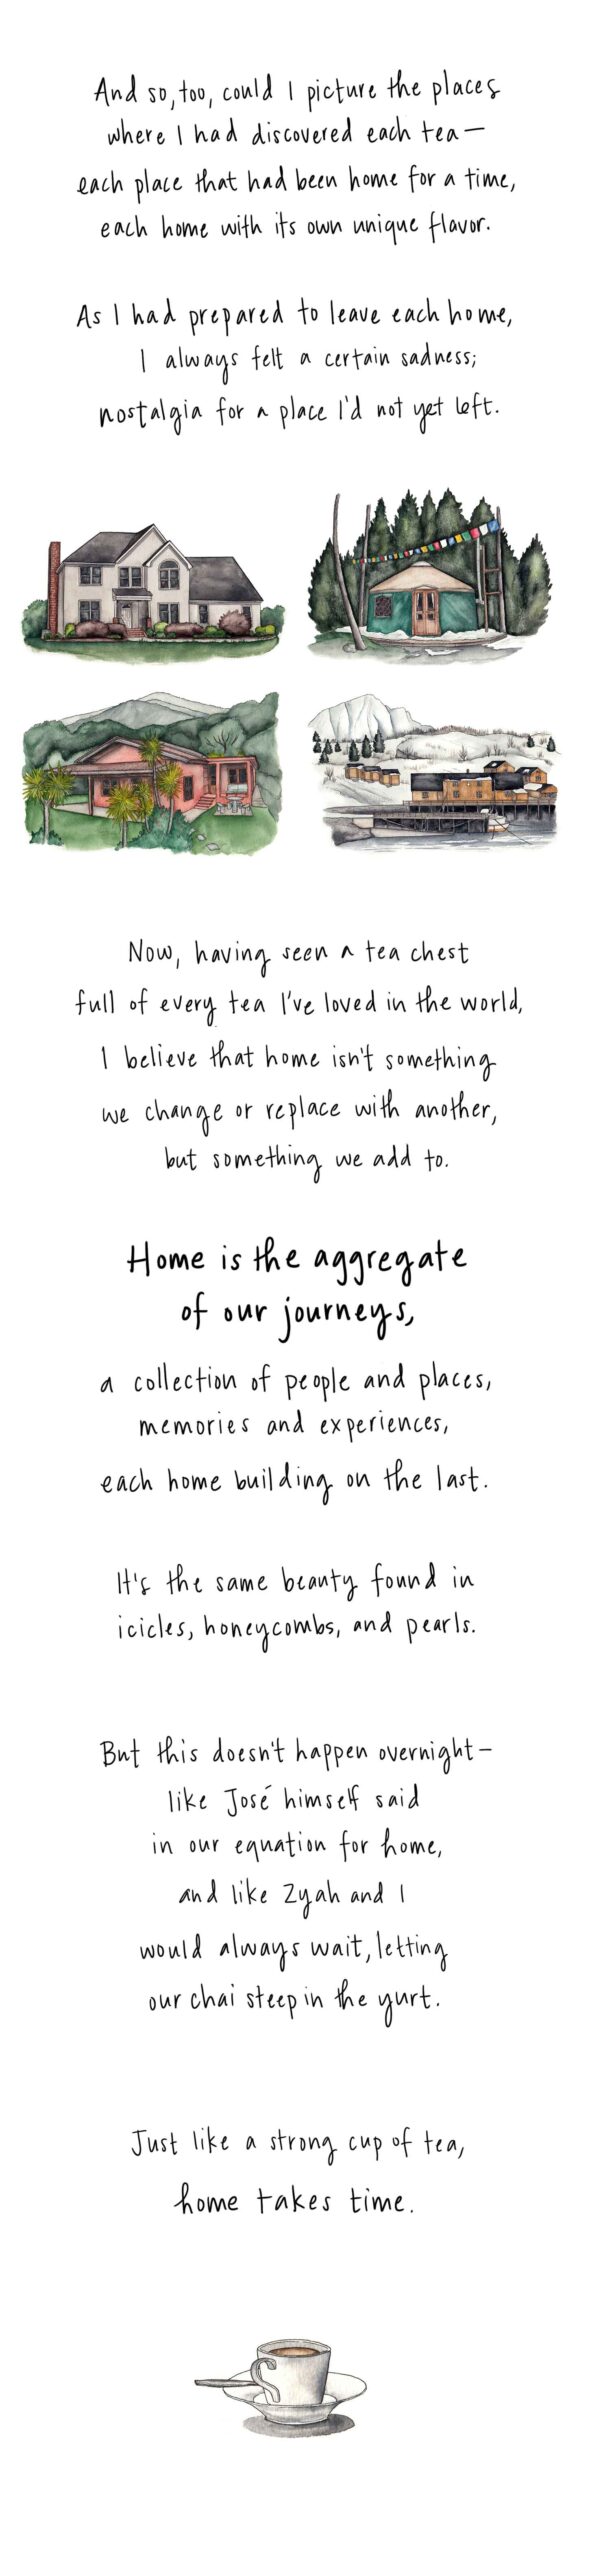 And so, too, could I picture the places
where I had discovered each tea—
each place that had been home for a time,
each home with its own unique flavor.
As I had prepared to leave each home,
I always felt a certain sadness;
nostalgia for a place I'd not yet left.
Now, having seen a tea chest
full of every tea I've loved in the world,
I believe that home isn't something
we change or replace with another,
but something we add to.
Home is the aggregate
of our journeys,
a collection of people and places,
memories and experiences,
each home building on the last.
It's the same beauty found in
icicles, honeycombs, and pearls.
But this doesn't happen overnight—
like José himself said
in our equation for home,
and like Zyah and I
would always wait, letting
our chai steep in the yurt.
Just like a strong cup of tea,
home takes time.